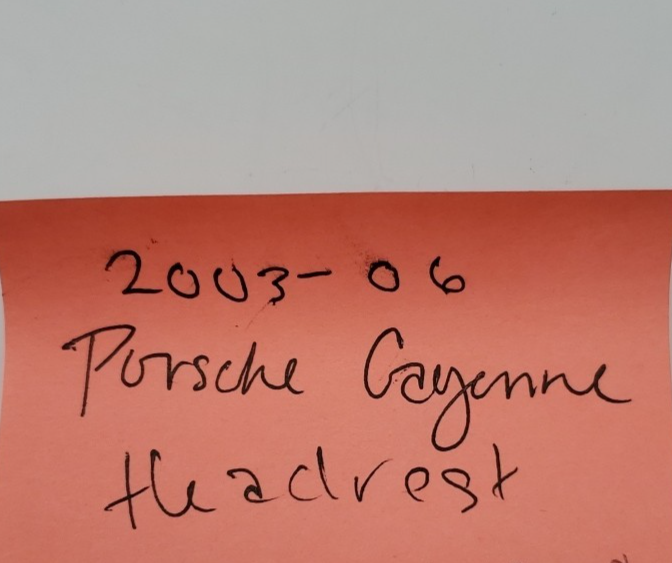 2003-06
Porsche Cayenne
Headrest